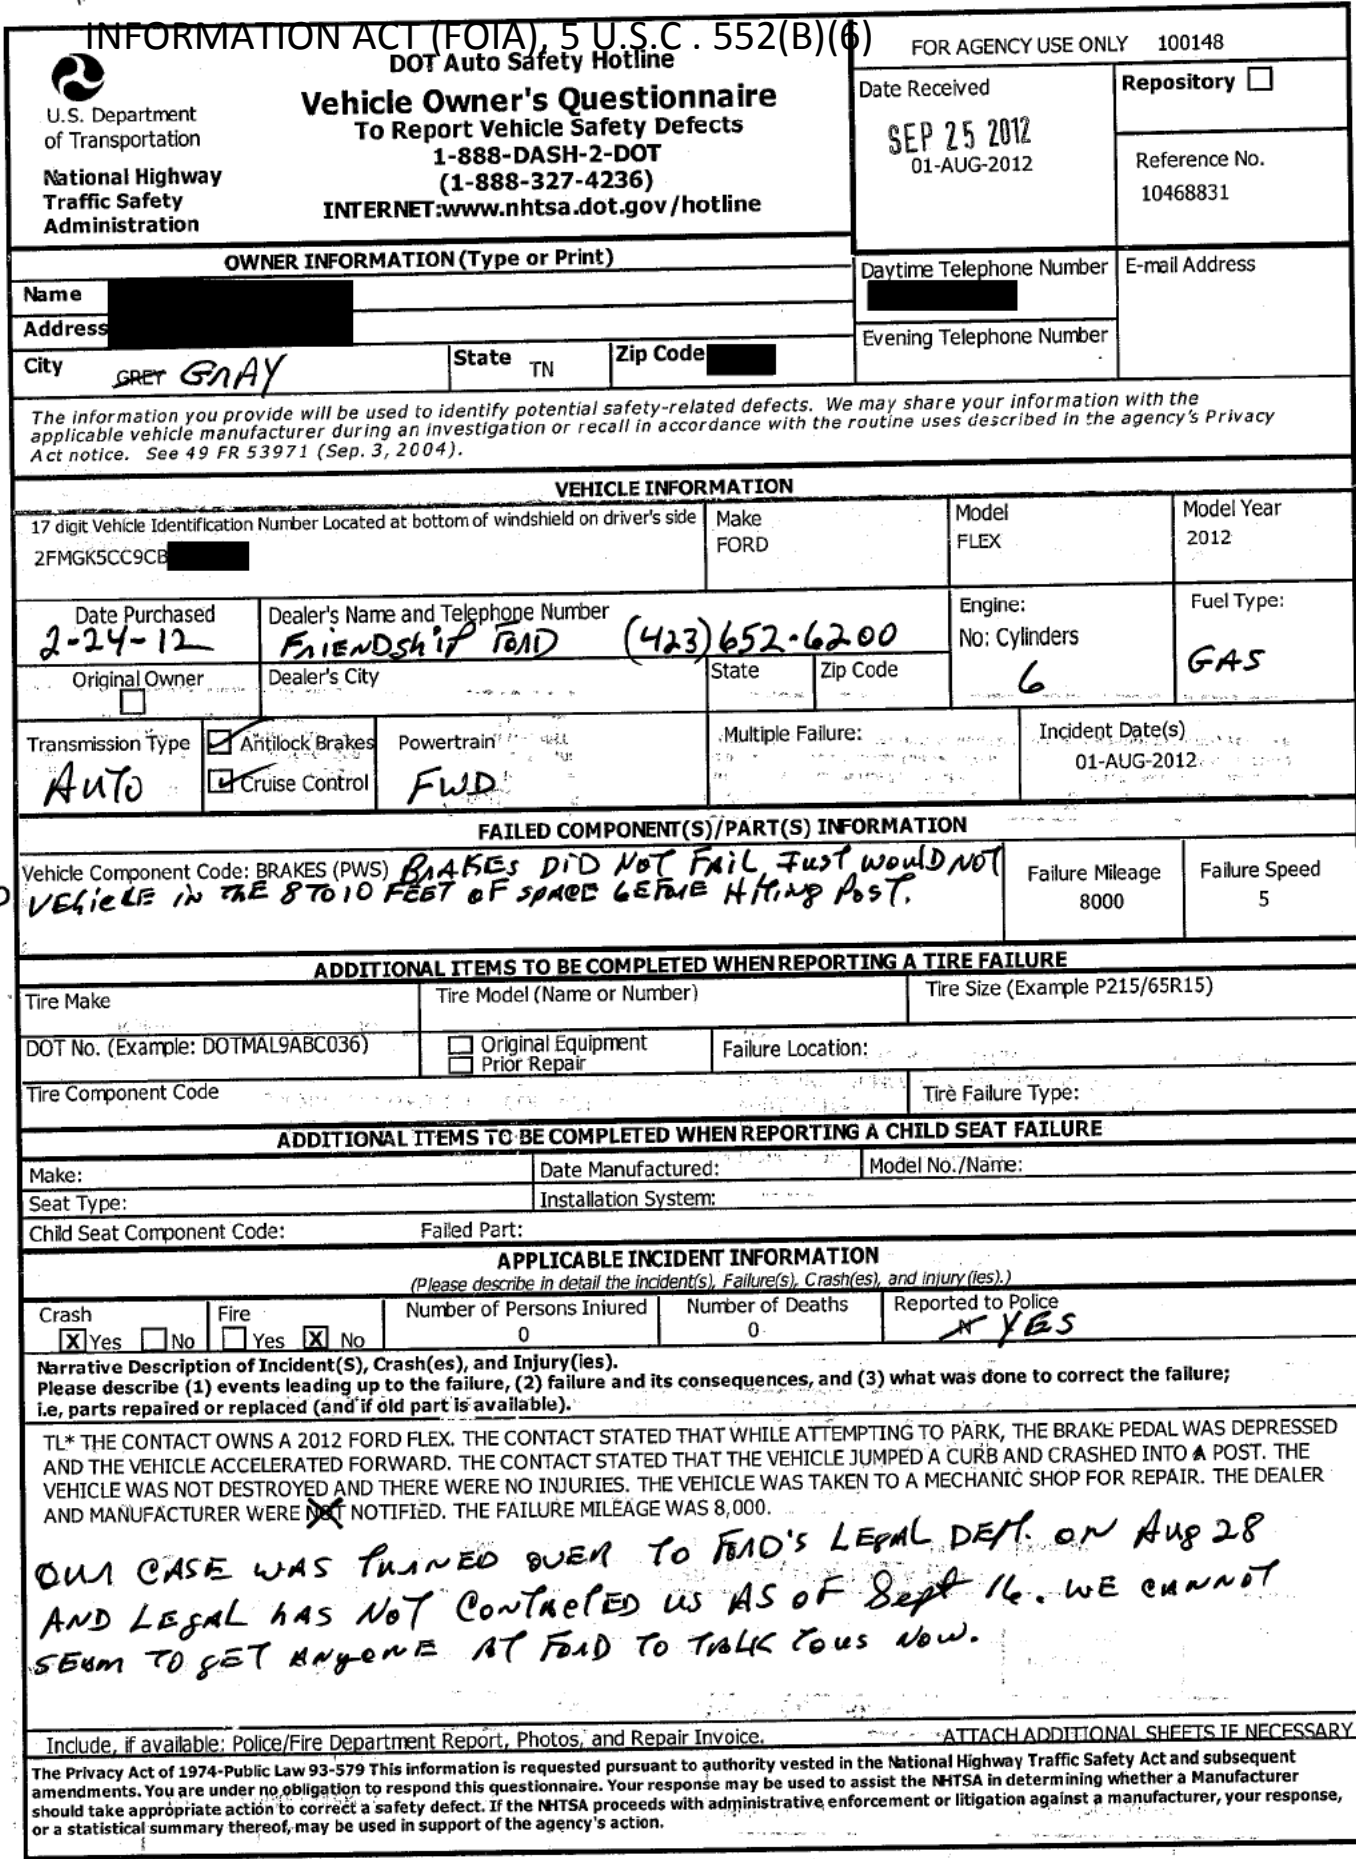 INFORMATION ACT (FOIA), 5 U.S.C . 552(B)(6)
DOT Auto Safety Hotline
Vehicle Owner's Questionnaire
To Report Vehicle Safety Defects
1-888-DASH-2-DOT
(1-888-327-4236)
INTERNET:www.nhtsa.dot.gov/hotline
U.S. Department
of Transportation
National Highway
Traffic Safety
Administration
FOR AGENCY USE ONLY 100148
Date Received
SEP 25 2012
01-AUG-2012
Repository
Reference No.
10468831
OWNER INFORMATION (Type or Print)
Name
Address
City GREY GRAY State TN Zip Code
Daytime Telephone Number
E-mail Address
Evening Telephone Number
The information you provide will be used to identify potential safety-related defects. We may share your information with the
applicable vehicle manufacturer during an investigation or recall in accordance with the routine uses described in the agency's Privacy
Act notice. See 49 FR 53971 (Sep. 3, 2004).
VEHICLE INFORMATION
17 digit Vehicle Identification Number Located at bottom of windshield on driver's side
2FMGK5CC9CB
Make
FORD
Model
FLEX
Model Year
2012
Date Purchased
2-24-12
Dealer's Name and Telephone Number
FRIENDShiP FORD (423)652-6200
Engine:
No: Cylinders
6
Fuel Type:
GAS
Original Owner
Dealer's City
State
Zip Code
Transmission Type
AUTO
Antilock Brakes
Cruise Control
Powertrain
FWD
Multiple Failure:
Incident Date(s)
01-AUG-2012
FAILED COMPONENT(S)/PART(S) INFORMATION
Vehicle Component Code: BRAKES (PWS) BRAKES DiD NOT FAIL Just would NOT
VEhicLE iN THE 8 TO 10 FEET OF SPACE bEFORE HiTing POST.
Failure Mileage
8000
Failure Speed
5
ADDITIONAL ITEMS TO BE COMPLETED WHEN REPORTING A TIRE FAILURE
Tire Make
Tire Model (Name or Number)
Tire Size (Example P215/65R15)
DOT No. (Example: DOTMAL9ABC036)
Original Equipment
Prior Repair
Failure Location:
Tire Component Code
Tire Failure Type:
ADDITIONAL ITEMS TO BE COMPLETED WHEN REPORTING A CHILD SEAT FAILURE
Make:
Date Manufactured:
Model No./Name:
Seat Type:
Installation System:
Child Seat Component Code:
Failed Part:
APPLICABLE INCIDENT INFORMATION
(Please describe in detail the incident(s), Failure(s), Crash(es), and injury(ies).)
Crash
X Yes No
Fire
Yes X No
Number of Persons Injured
0
Number of Deaths
0
Reported to Police
N YES
Narrative Description of Incident(S), Crash(es), and Injury(ies).
Please describe (1) events leading up to the failure, (2) failure and its consequences, and (3) what was done to correct the failure;
i.e, parts repaired or replaced (and if old part is available).
TL* THE CONTACT OWNS A 2012 FORD FLEX. THE CONTACT STATED THAT WHILE ATTEMPTING TO PARK, THE BRAKE PEDAL WAS DEPRESSED
AND THE VEHICLE ACCELERATED FORWARD. THE CONTACT STATED THAT THE VEHICLE JUMPED A CURB AND CRASHED INTO A POST. THE
VEHICLE WAS NOT DESTROYED AND THERE WERE NO INJURIES. THE VEHICLE WAS TAKEN TO A MECHANIC SHOP FOR REPAIR. THE DEALER
AND MANUFACTURER WERE NOT NOTIFIED. THE FAILURE MILEAGE WAS 8,000.
OUR CASE WAS TURNED OVER TO FORD'S LEGAL DEPT. ON Aug 28
AND LEGAL hAS NOT CONTACTED US AS OF Sept 16. WE CANNOT
SEEM TO GET ANYONE AT FORD TO TALK TO US NOW.
Include, if available: Police/Fire Department Report, Photos, and Repair Invoice.
ATTACH ADDITIONAL SHEETS IF NECESSARY
The Privacy Act of 1974-Public Law 93-579 This information is requested pursuant to authority vested in the National Highway Traffic Safety Act and subsequent
amendments. You are under no obligation to respond this questionnaire. Your response may be used to assist the NHTSA in determining whether a Manufacturer
should take appropriate action to correct a safety defect. If the NHTSA proceeds with administrative enforcement or litigation against a manufacturer, your response,
or a statistical summary thereof, may be used in support of the agency's action.